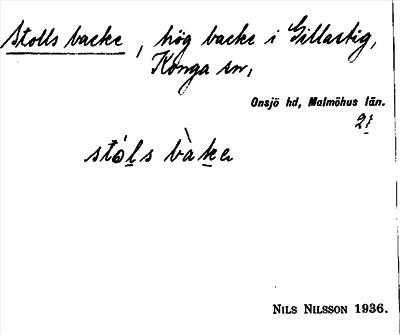 Stolls backe, hög backe i Gillastig,
Konga sn,
Onsjö hd, Malmöhus län.
stóls bàke
NILS NILSSON 1936.